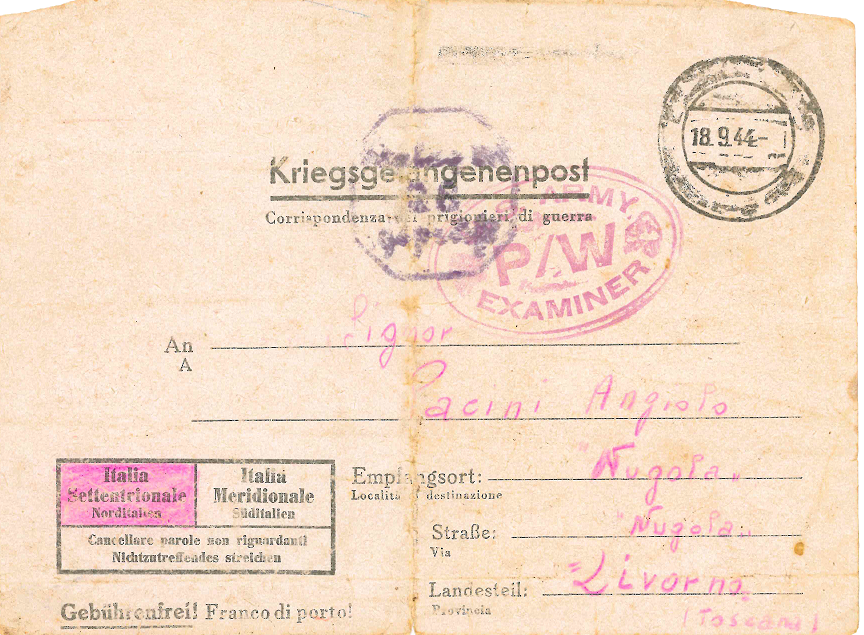 18.9.44-
Kriegsgefangenenpost
Corrispondenza dei prigionieri di guerra
U.S. ARMY
P/W
EXAMINER
Signor
An
A
Pacini Angiolo
Italia
Settentrionale
Norditalien
Italia
Meridionale
Süditalien
Cancellare parole non riguardanti
Nichtzutreffendes streichen
Empfangsort: "Nugola"
Località di destinazione
Straße: "Nugola"
Via
Landesteil: "Livorno"
Provincia
(Toscana)
Gebührenfrei! Franco di porto!